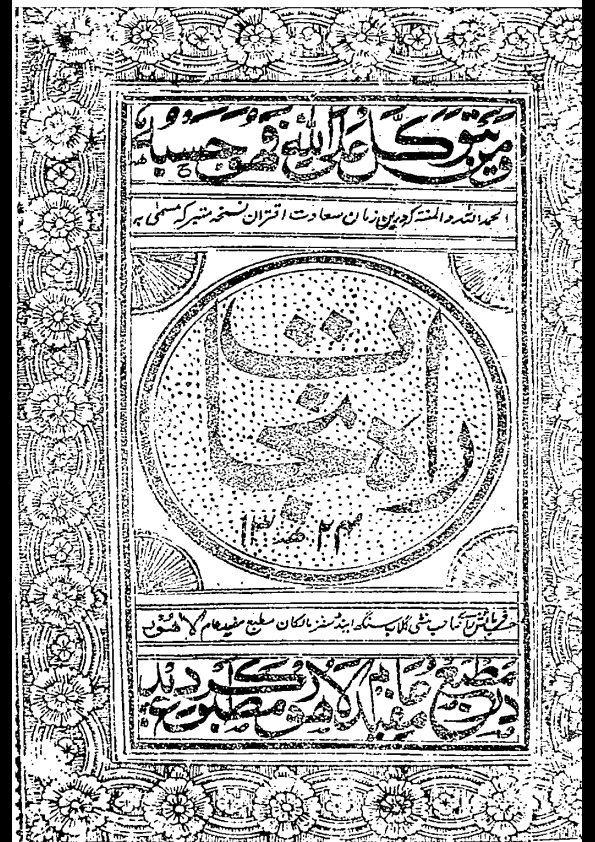 ومن یتوکل علی الله فهو حسبه
الحمد لله والمنته که درین زمان سعادت اقتران نسخه متبرکه مسمی به
راه نجات
۱۳۲۴ھ
حسب فرمائش جناب منشی گلاب سنگھ اینڈ سنز مالکان مطبع مفید عام لاهور
در مطبع مفید عام لاهور مطبوع گردید